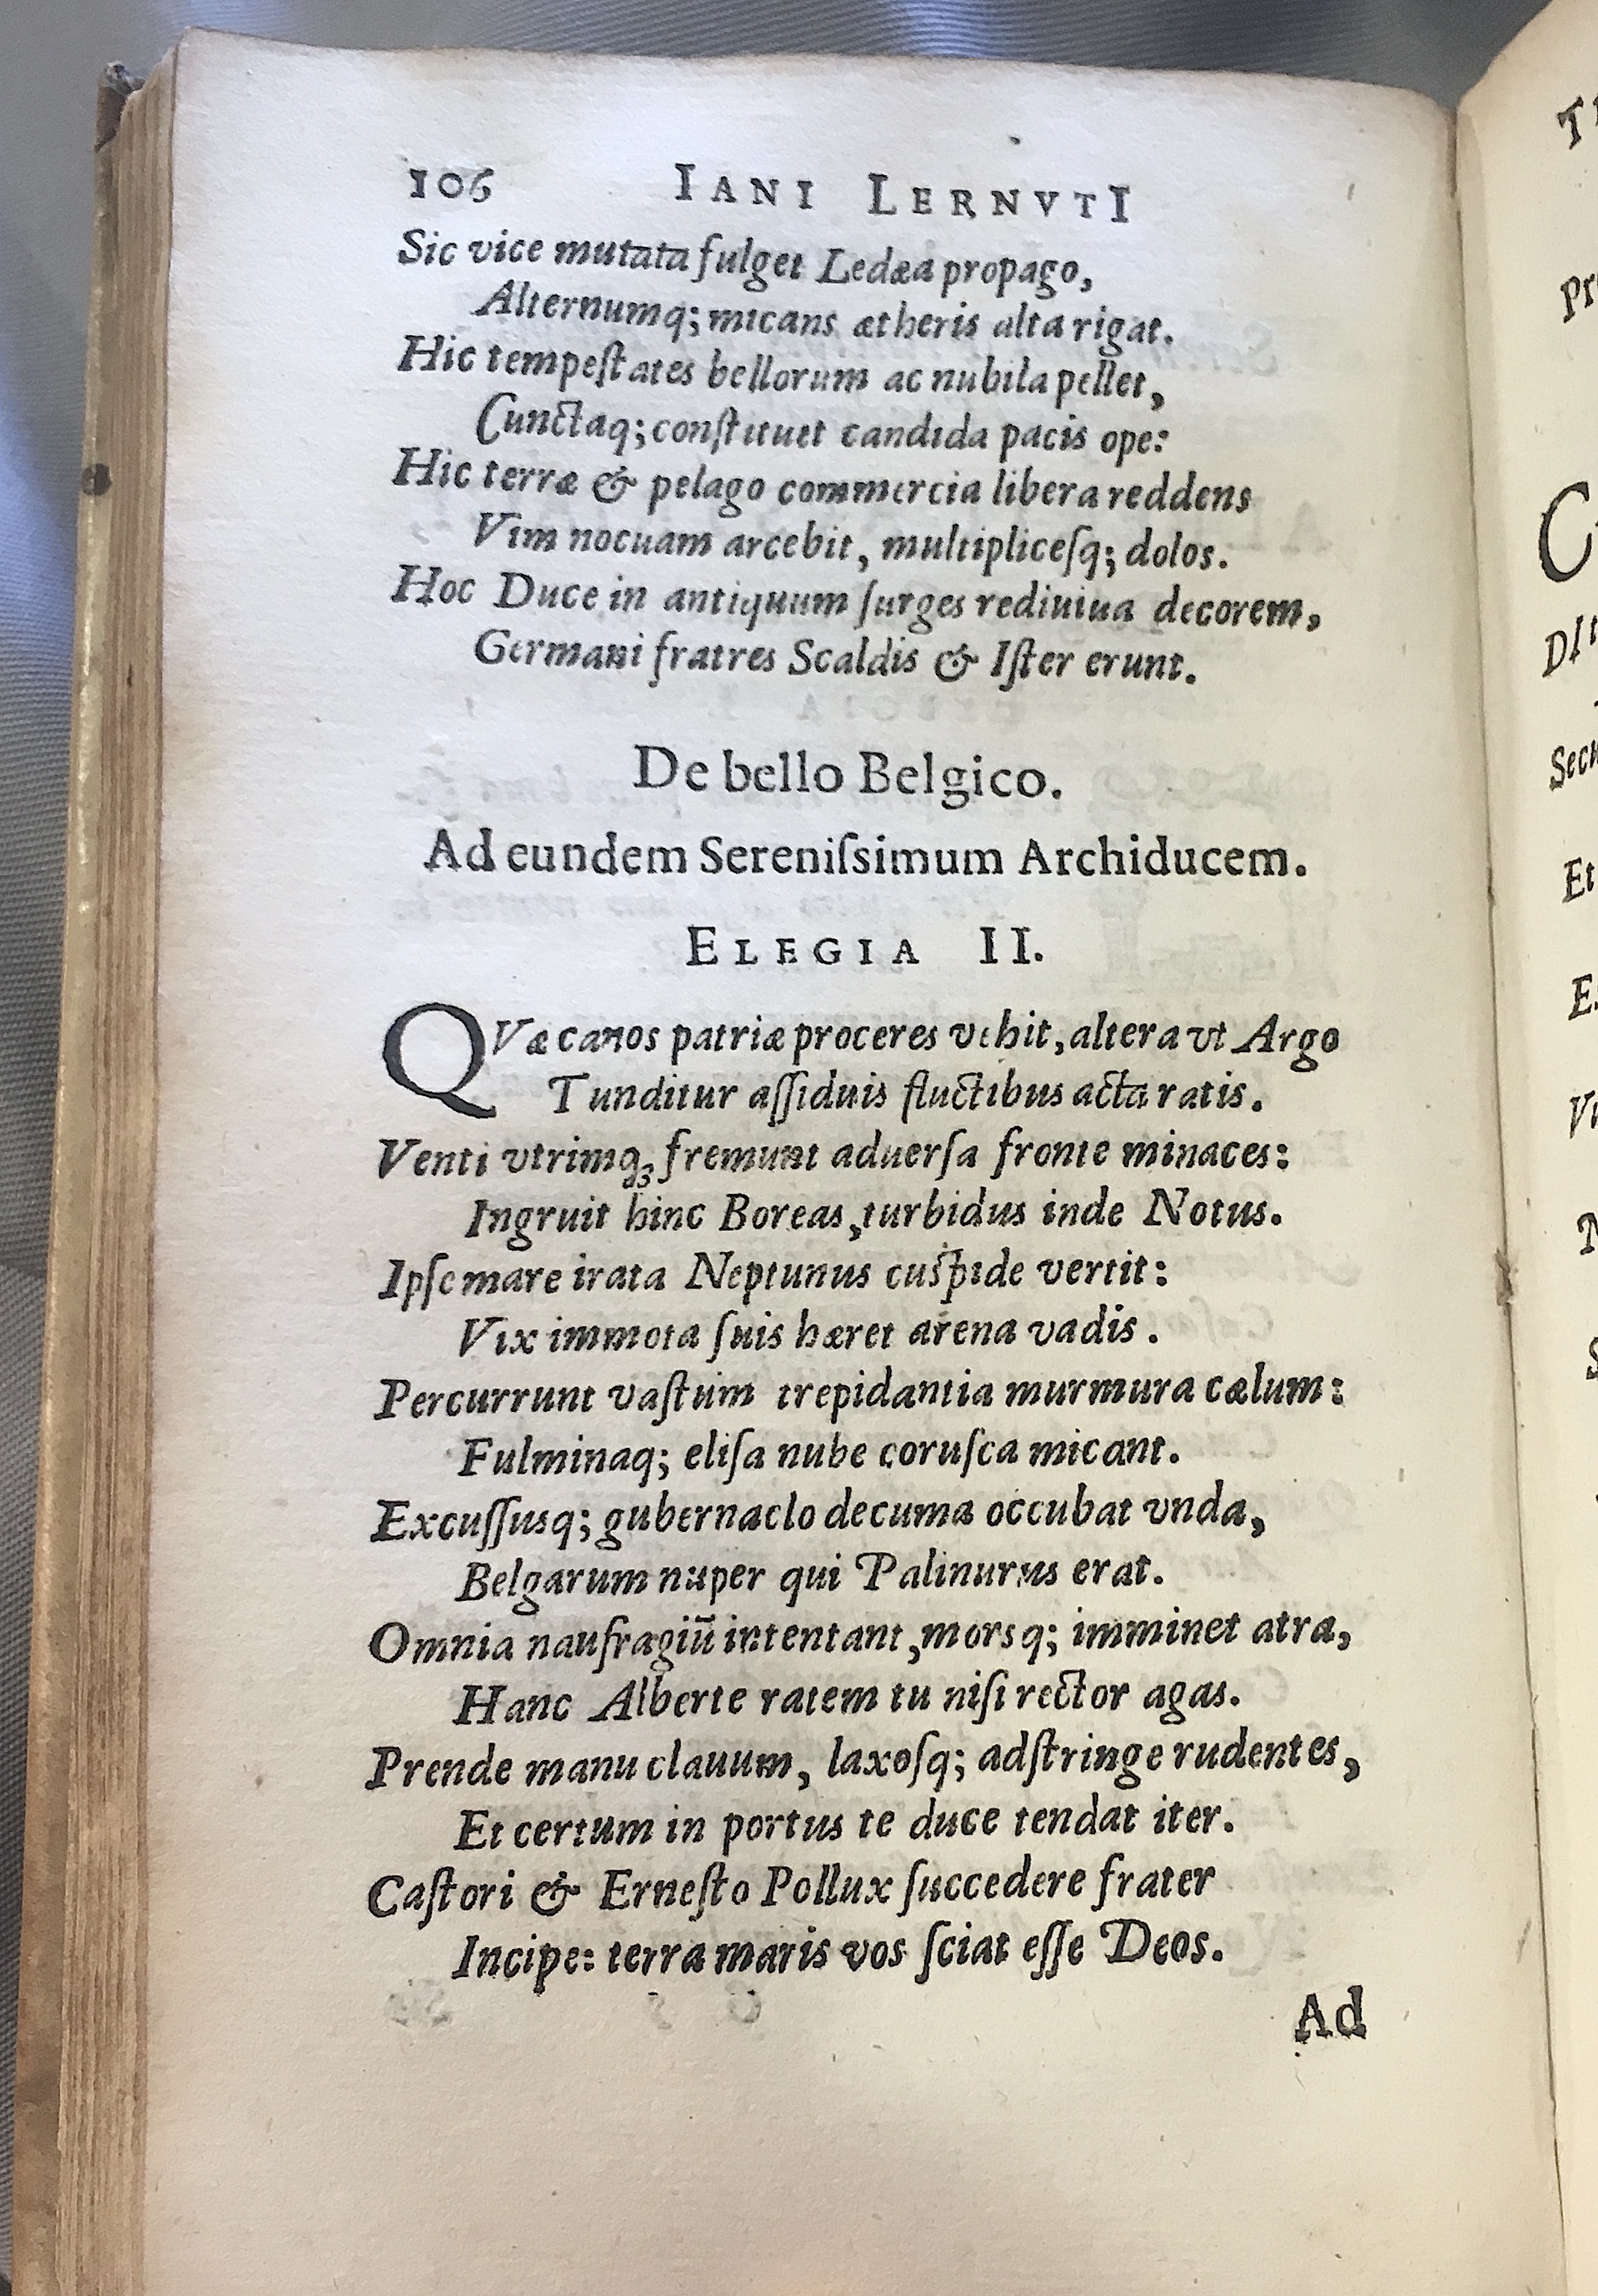 106 IANI LERNVTI
Sic vice mutata fulget Ledæa propago,
Alternumq; micans ætheris alta rigat.
Hic tempeſtates bellorum ac nubila pellet,
Cunctaq; conſtituet candida pacis ope:
Hic terræ & pelago commercia libera reddens
Vim nocuam arcebit, multipliceſq; dolos.
Hoc Duce in antiquum ſurges rediuiua decorem,
Germani fratres Scaldis & Iſter erunt.
De bello Belgico.
Ad eundem Sereniſsimum Archiducem.
ELEGIA II.
QVæ canos patriæ proceres vehit, altera vt Argo
Tunditur aſſiduis fluctibus acta ratis.
Venti vtrimqꝫ fremunt aduerſa fronte minaces:
Ingruit hinc Boreas, turbidus inde Notus.
Ipſe mare irata Neptunus cuſpide vertit:
Vix immota ſuis hæret arena vadis.
Percurrunt vaſtum trepidantia murmura cælum:
Fulminaq; eliſa nube coruſca micant.
Excuſſusq; gubernaclo decuma occubat vnda,
Belgarum nuper qui Palinurus erat.
Omnia naufragiū intentant, morsq; imminet atra,
Hanc Alberte ratem tu niſi rector agas.
Prende manu clauum, laxoſq; adſtringe rudentes,
Et certum in portus te duce tendat iter.
Caſtori & Erneſto Pollux ſuccedere frater
Incipe: terra maris vos ſciat eſſe Deos.
Ad